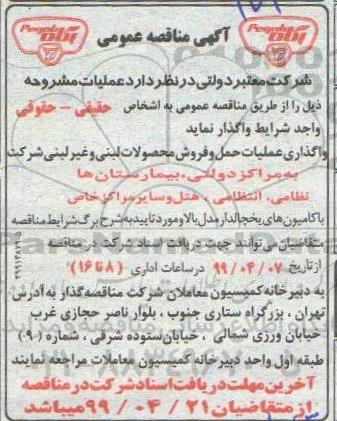 ۱۷۱
آگهی مناقصه عمومی
Pegah
پگاه
Pegah
پگاه
شرکت معتبر دولتی در نظر دارد عملیات مشروحه
ذیل را از طریق مناقصه عمومی به اشخاص حقیقی - حقوقی
واجد شرایط واگذار نماید
واگذاری عملیات حمل و فروش محصولات لبنی و غیر لبنی شرکت
به مراکز دولتی، بیمارستان ها
نظامی، انتظامی، هتل و سایر مراکز خاص
با کامیون های یخچالدار مدل بالا و مورد تایید به شرح برگ شرایط مناقصه
متقاضیان می توانند جهت دریافت اسناد شرکت در مناقصه
از تاریخ ۹۹/۰۴/۰۷ در ساعات اداری (۸ تا ۱۶)
به دبیرخانه کمیسیون معاملات شرکت مناقصه گذار به آدرس
تهران، بزرگراه ستاری جنوب، بلوار ناصر حجازی غرب
خیابان ورزی شمالی، خیابان ستوده شرقی، شماره (۹)
طبقه اول واحد دبیرخانه کمیسیون معاملات مراجعه نمایند
آخرین مهلت دریافت اسناد شرکت در مناقصه
از متقاضیان ۹۹/۰۴/۲۱ میباشد